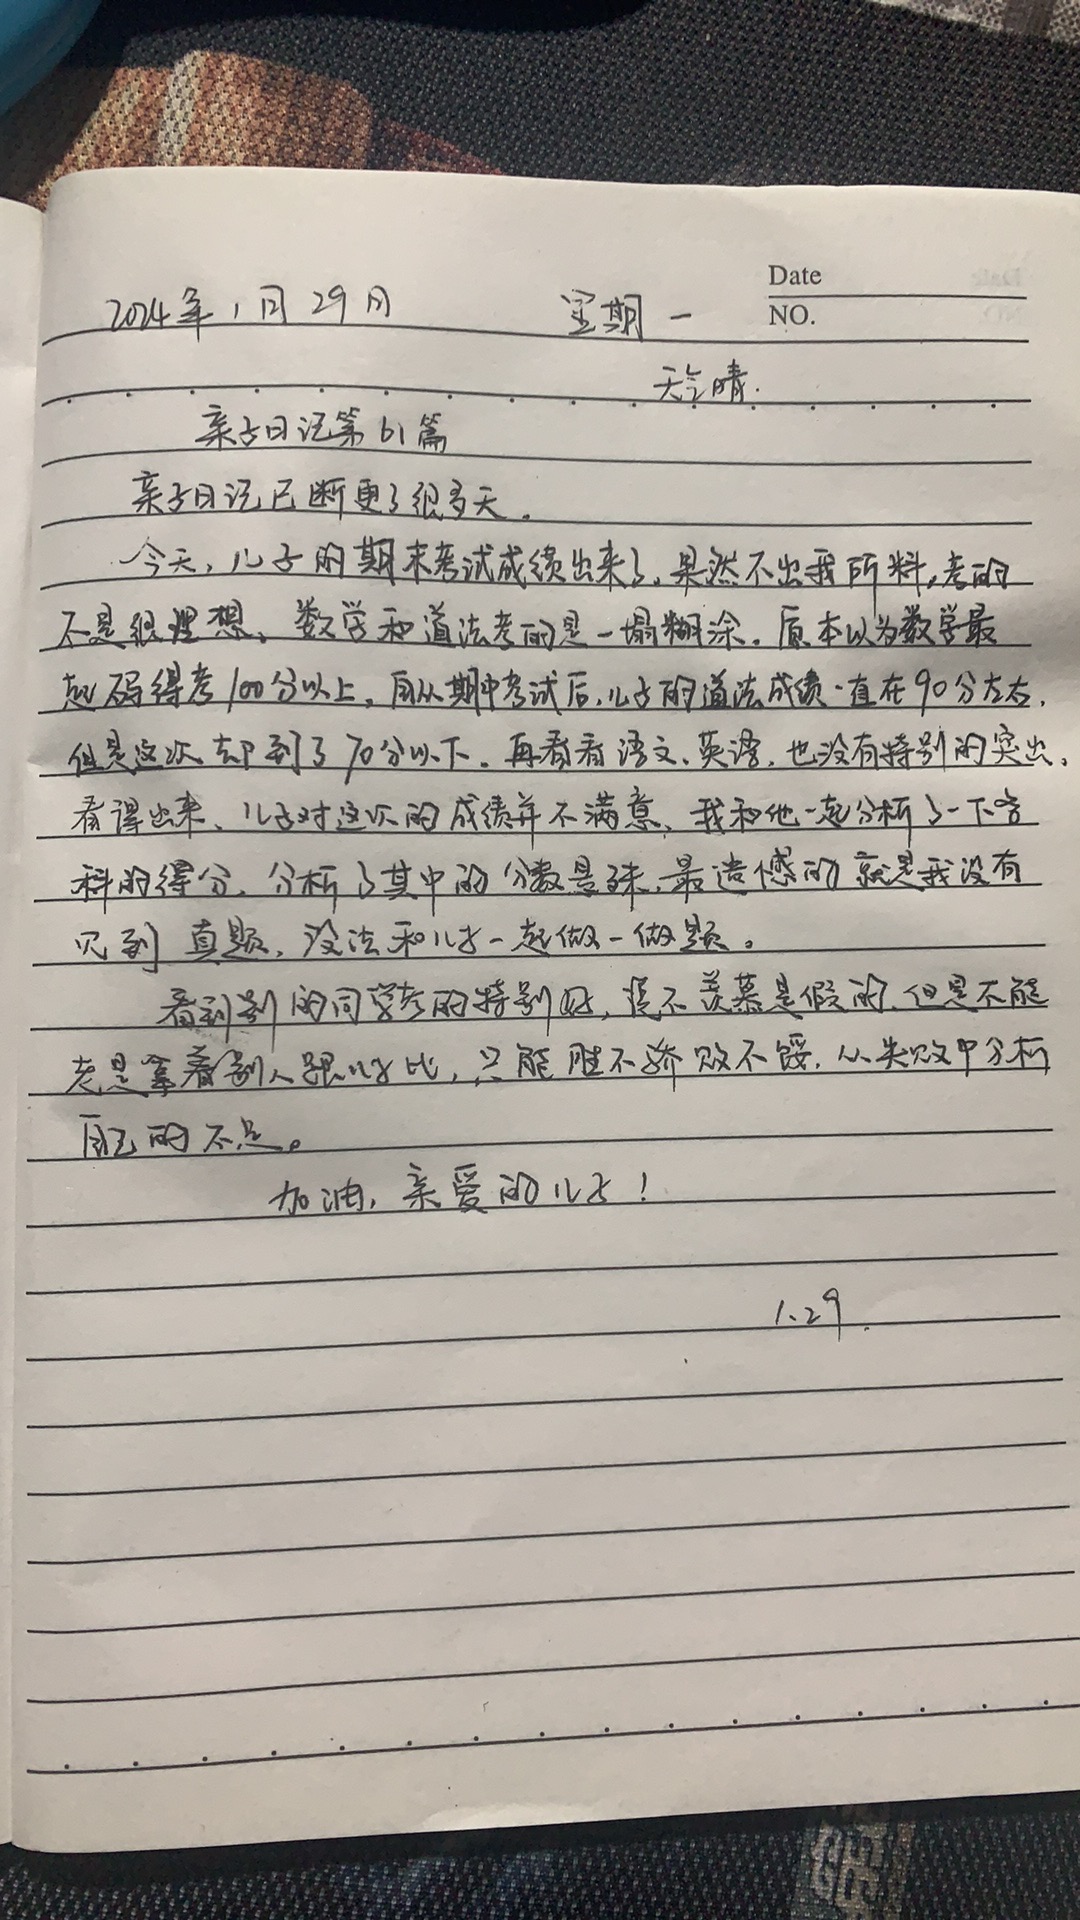 Date
2024年1月29日 星期一 NO.
天气晴.
亲子日记第61篇
亲子日记已断更了很多天.
今天,儿子的期末考试成绩出来了,果然不出我所料,考的
不是很理想,数学和道法考的是一塌糊涂。原本以为数学最
起码得考100分以上,自从期中考试后,儿子的道法成绩一直在90分左右,
但是这次却到了70分以下.再看看语文、英语,也没有特别的突出,
看得出来,儿子对这次的成绩并不满意,我和他一起分析了一下各
科的得分,分析了其中的分数悬殊,最遗憾的就是我没有
见到真题,没法和儿子一起做一做题。
看到别的同学考的特别好,说不羡慕是假的,但是不能
老是拿着别人跟儿子比,只能胜不骄败不馁,从失败中分析
自己的不足。
加油,亲爱的儿子!
1.29.